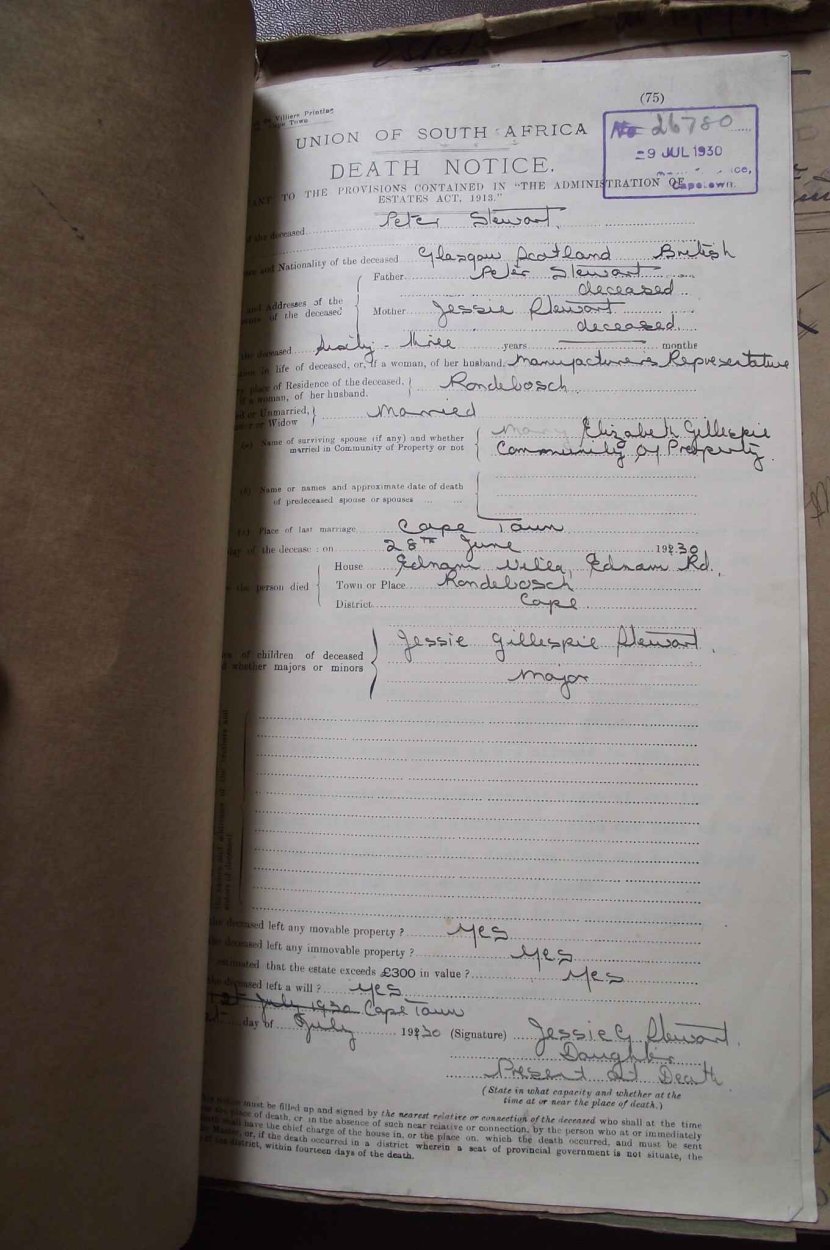 (75)
de Villiers Printing
Cape Town
No 26780
UNION OF SOUTH AFRICA
-9 JUL 1930
Capetown.
DEATH NOTICE.
TO THE PROVISIONS CONTAINED IN "THE ADMINISTRATION OF
ESTATES ACT, 1913."
the deceased Peter Stewart
and Nationality of the deceased Glasgow Scotland British
Father Peter Stewart
deceased
and Addresses of the
of the deceased
Mother Jessie Stewart
deceased
the deceased Sixty-three years months
in life of deceased, or, if a woman, of her husband, Manufacturers Representative
place of Residence of the deceased, Rondebosch
if a woman, of her husband.
or Unmarried, Married
or Widow
(a) Name of surviving spouse (if any) and whether Mary Elizabeth Gillespie
married in Community of Property or not Community of Property
(b) Name or names and approximate date of death
of predeceased spouse or spouses
(c) Place of last marriage Cape Town
day of the decease : on 28th June 19230
House Ednam Villa, Ednam Rd.
the person died
Town or Place Rondebosch
District Cape
Jessie Gillespie Stewart
of children of deceased
whether majors or minors
Major
the deceased left any movable property ? Yes
the deceased left any immovable property ? Yes
estimated that the estate exceeds £300 in value ? Yes
the deceased left a will ? Yes
July 1930 Cape Town
day of July 19230 (Signature) Jessie G Stewart
Daughter
Present at Death
(State in what capacity and whether at the
time at or near the place of death.)
must be filled up and signed by the nearest relative or connection of the deceased who shall at the time
place of death, or in the absence of such near relative or connection, by the person who at or immediately
shall have the chief charge of the house in, or the place on, which the death occurred, and must be sent
Master, or, if the death occurred in a district wherein a seat of provincial government is not situate, the
district, within fourteen days of the death.